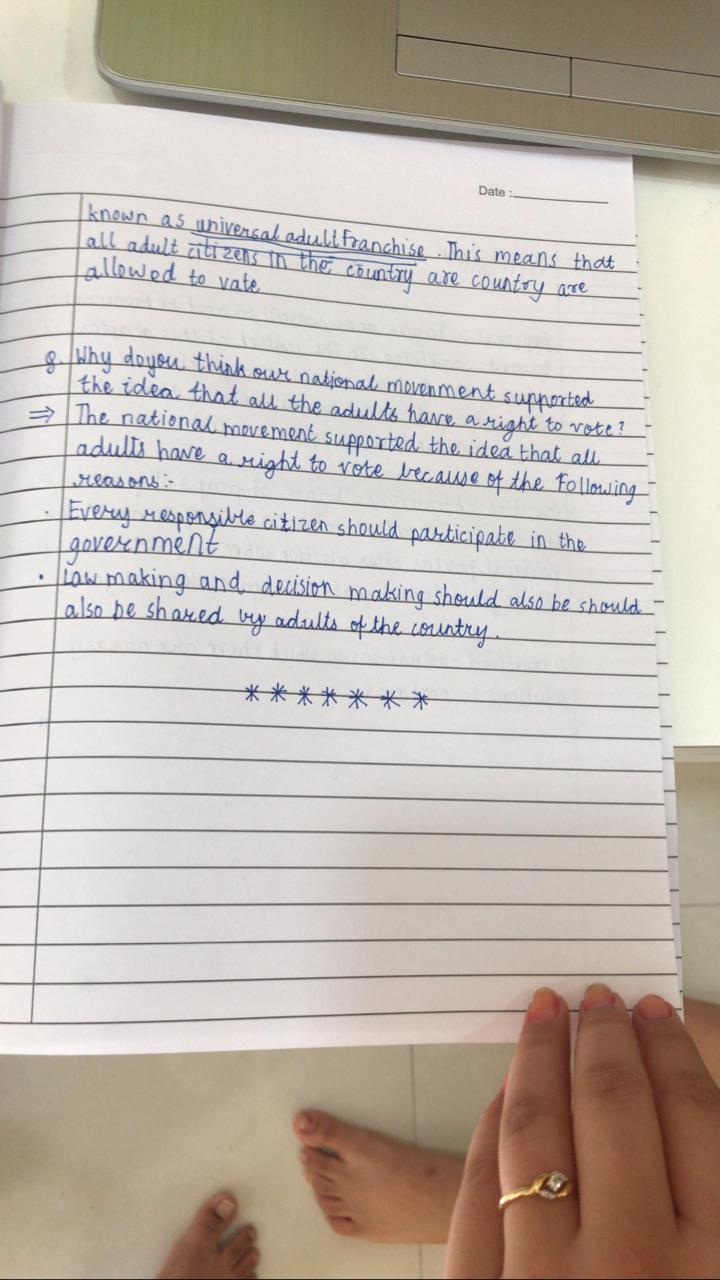 Date :
known as universal adult Franchise . This means that
all adult citizens in the country are country are
allowed to vate.
8. Why do you think our national movenment supported
the idea that all the adults have a right to vote?
⇒ The national movement supported the idea that all
adults have a right to vote because of the following
reasons:-
· Every responsible citizen should participate in the
government
· law making and decision making should also be should
also be shared by adults of the country.
* * * * * * *